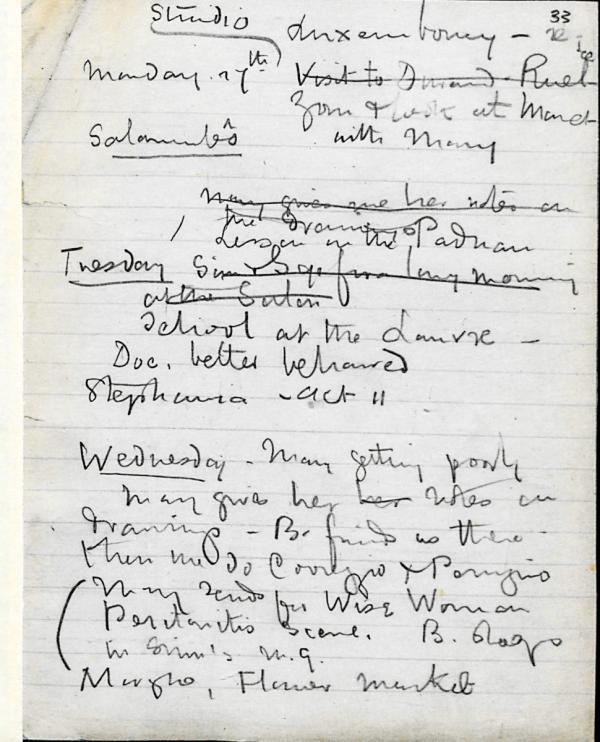 33
Studio Luxembourg –
Monday 17th Visit to Durand-Ruel
Zorn & look at Manet
Salammbô with Mary
Mary gives me her notes on
the Drawings
Lesson in the Paduan
Tuesday long morning
at the Salon
School at the Louvre –
Doc. better behaved
Stephania – act II
Wednesday – Mary getting poorly
Mary gives her her notes on
Drawings – B. finds us there
then we do Correggio &
Mary sends for Wise Woman
Peritonitis Scene. B. stays
in Simm's
Morgue, Flower market